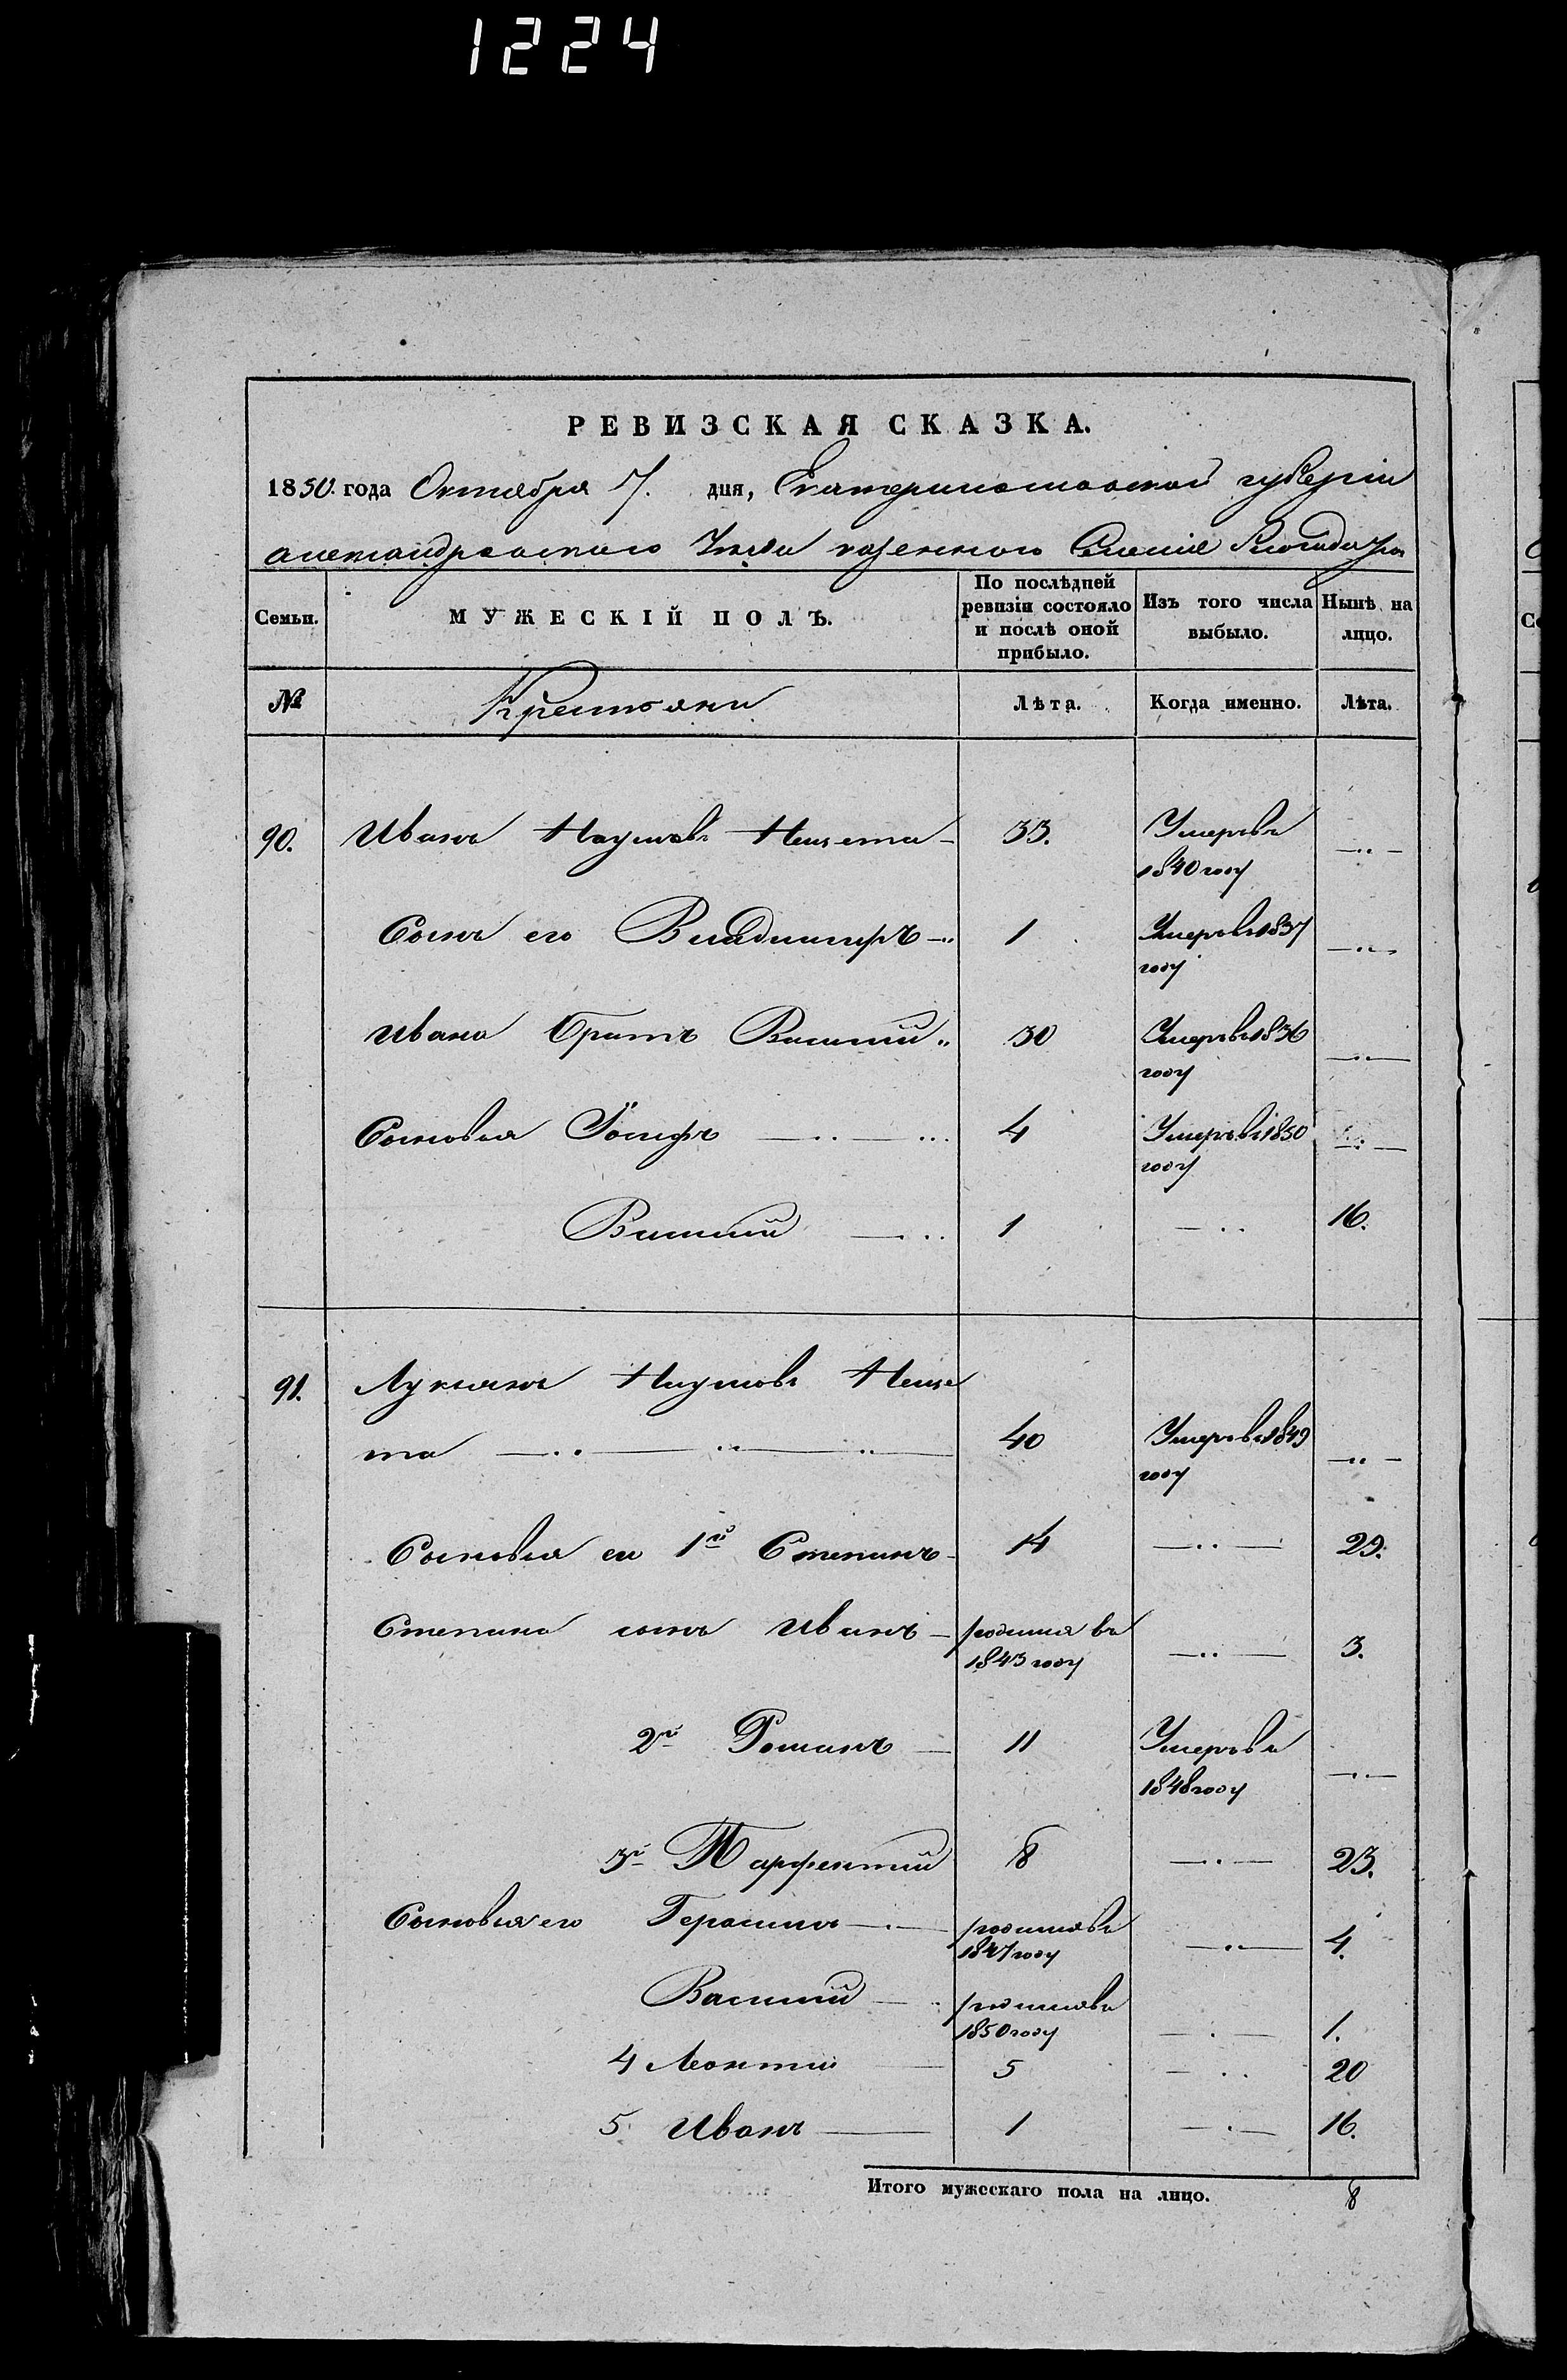 1224
РЕВИЗСКАЯ СКАЗКА.
1850. года Октября 7. дня, Екатеринославской губерніи
александровскаго Уезда казенного Селенія
Семьи. МУЖЕСКІЙ ПОЛЪ. По послѣдней ревизіи состояло и послѣ оной прибыло. Изъ того числа выбыло. Нынѣ на лицо.
№ Крестьяни Лѣта. Когда именно. Лѣта.
90. Иванъ Наумовъ 33. Умеръ въ
1840 году
Сынъ его Владимиръ 1 Умеръ в 1837
году
Ивана братъ Василий 30 Умеръ в 1836
году
Сыновья Іосифъ 4 Умеръ в 1850
году
Василий 1 16.
91. Лукьянъ Наумовъ
та 40 Умеръ в 1849
году
Сыновья ег 1й Степанъ 14 29.
Степана сынъ Иванъ родился въ 3.
1843 году
2й Романъ 11 Умеръ в
1848 году
3й Парфентий 8 23.
Сыновья его Герасимъ родился в 4.
1847 году
Василий родился в
1850 году 1.
4 Леонтий 5 20
5 Иванъ 1 16.
Итого мужескаго пола на лицо. 8